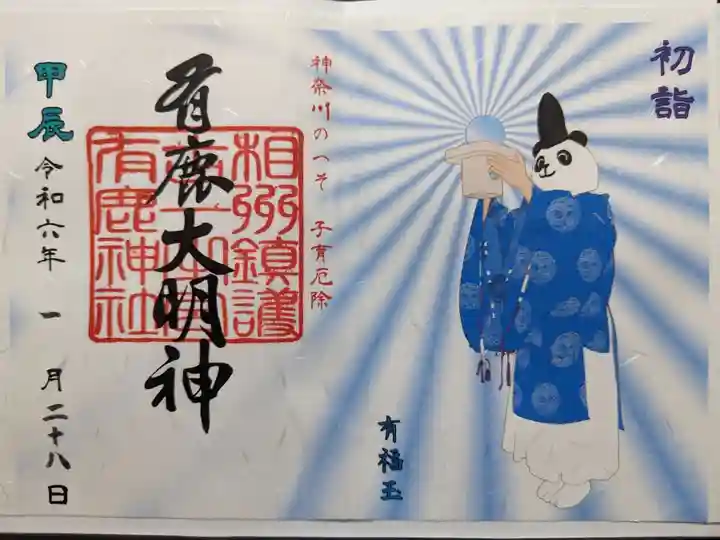 初詣
神奈川のへそ 子育厄除
有鹿大明神
相州鎮護
有鹿神社
甲辰 令和六年 一月二十八日
有福玉